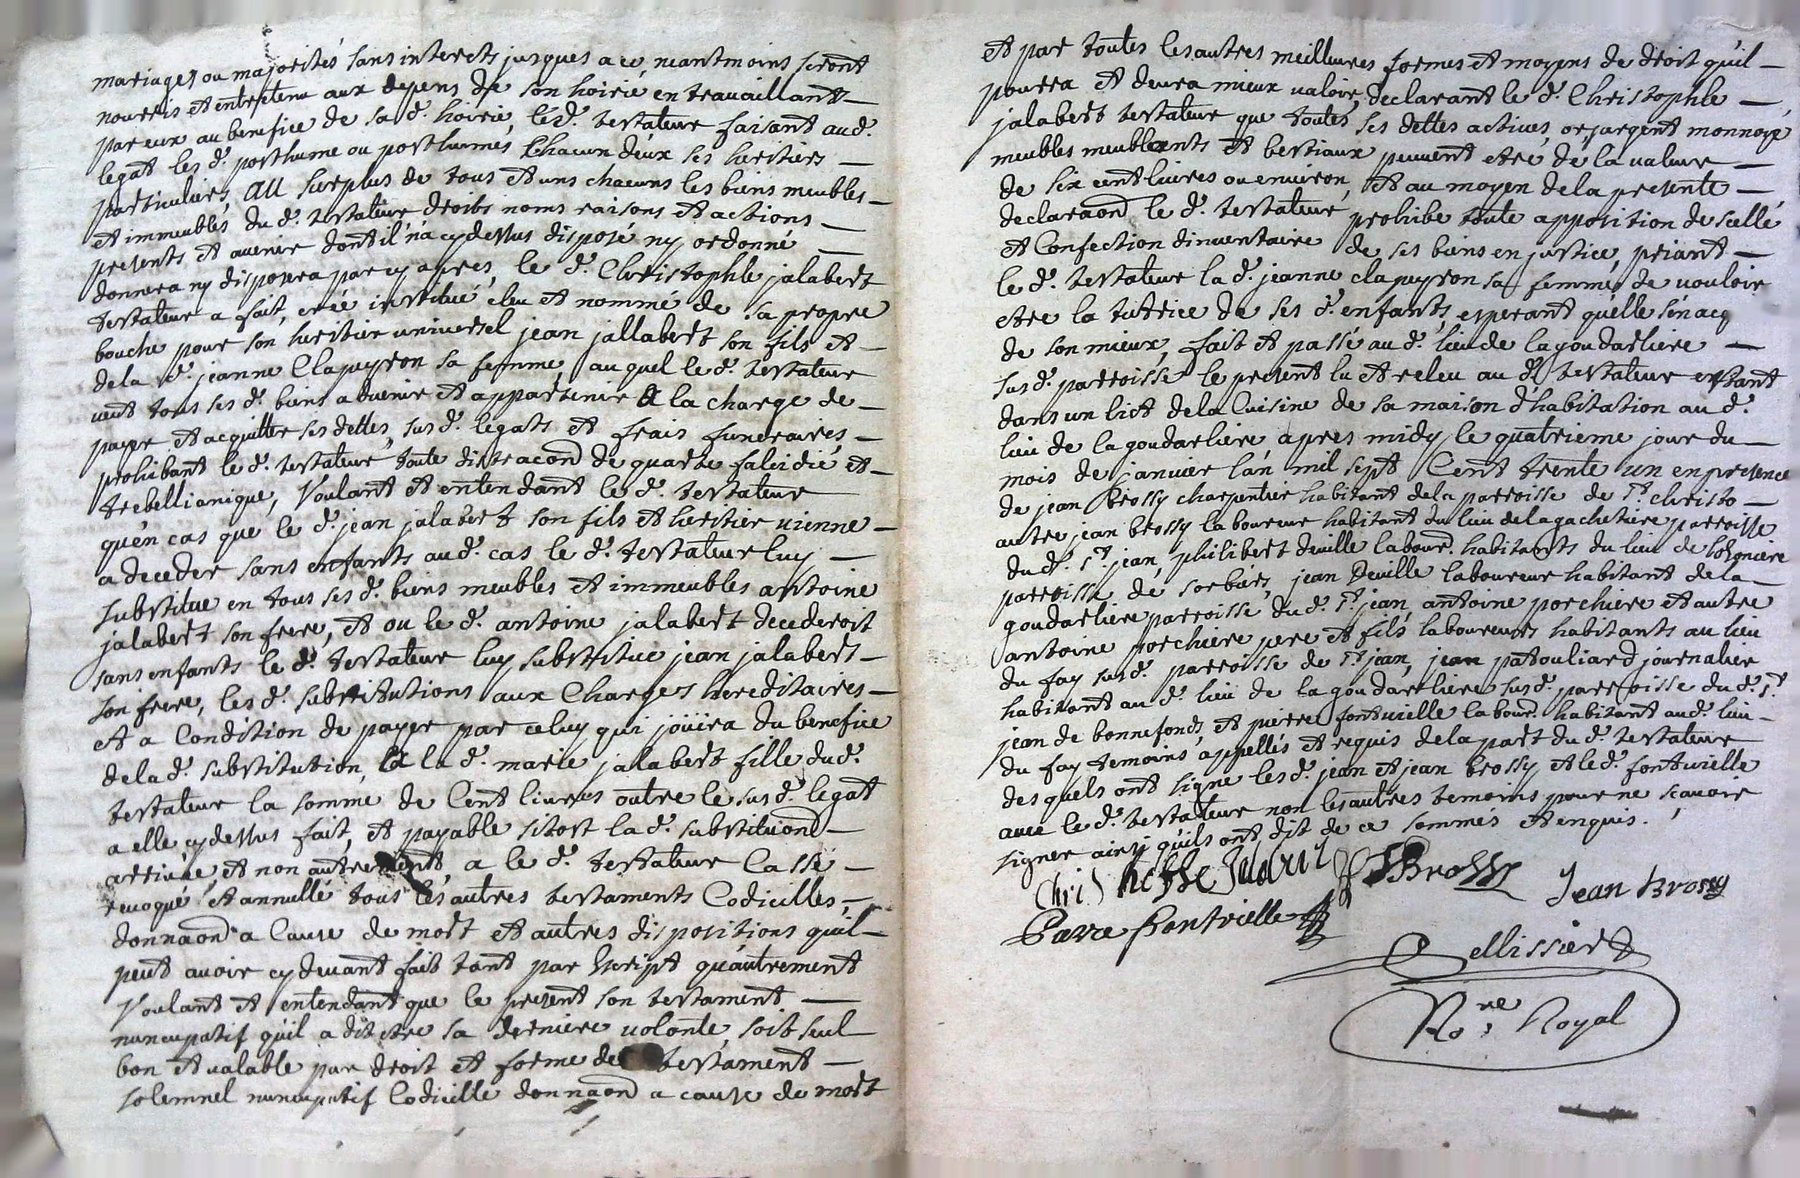 mariages ou majorités sans interets jusques a ce, neantmoins seront
nourris et entretenu aux depens de son hoirie en travaillant
par eux au benefice de sa d. hoirie, led. testateur faisant aud.
legat les d. posthume ou posthumes chacun deux ses heritiers
particuliers, au surplus de tous et uns chacuns les biens meubles
et immeubles du d. testateur droits noms raisons et actions
presents et avenir dont il n'a cy dessus disposé ny ordonné
donnera ny disposera par cy apres, le d. Christophle jalabert
testateur a fait, creé institué eleu et nommé de sa propre
bouche pour son heritier universel jean jallabert son fils et
de la d. jeanne Clapeyron sa femme, au quel le d. testateur
veut tous ses d. biens advenir et appartenir a la charge de
payer et acquitter ses dettes, sus d. legats et frais funeraires
prohibant le d. testateur toute distracaon de quarte falcidie et
trebellianique, Voulant et entendant le d. testateur
qu'en cas que le d. jean jalabert son fils et heritier vienne
a deceder sans enfants au d. cas le d. testateur luy
substitue en tous ses d. biens meubles et immeubles antoine
jalabert son frere, et ou le d. antoine jalabert decederoit
sans enfants le d. testateur luy substitue jean jalabert
son frere, les d. substitutions aux Charges hereditaires
et a Condition de payer par celuy qui joüira du benefice
de la d. substitution, a la d. marie jalabert fille du d.
testateur la somme de Cent livres outre le sus d. legat
a elle cy dessus fait, et payable sitost la d. substituond
arrivée, et non autrement, a le d. testateur Cassé
revoqué et annullé tous les autres testaments Codicilles,
donnaond a Cause de mort et autres dispositions qu'il
peut avoir cy devant fait tant par Escript qu'autrement
Voulant et entendant que le present son testament
nuncupatif qu'il a dit etre sa derniere volonté soit seul
bon et valable par droit et forme de testament
solemnel nuncupatif Codicille donnaond a cause de mort
et par toutes les autres meilleures formes et moyens de droit qu'il
pourra et devra mieux valoir, declarant le d. Christophle
jalabert testateur que toutes ses dettes actives, or, argent monnoyé
meubles meublants et bestiaux peuvent etre de la valeur
de six cent livres ou environ, et au moyen de la presente
declaraond le d. testateur prohibe toute apposition de scellé
et Confection d'inventaire de ses biens en justice, priant
le d. testateur la d. jeanne clapeyron sa femme, de vouloir
etre la tutrice de ses d. enfants, esperant qu'elle s'en acq
de son mieux, fait et passé au d. lieu de la goudarliere
sus d. parroisse le present lu et releu au d. testateur estant
dans un lict de la Cuisine de sa maison d'habitation au d.
lieu de la goudarliere apres midy le quatrieme jour du
mois de janvier l'an mil sept Cent trente un en presence
de jean Brossy charpentier habitant de la parroisse de St. christo
autre jean brossy laboureur habitant du lieu de la gachetiere parroisse
du d. St. jean, philibert deville labour. habitants du lieu de
parroisse de sorbiers, jean Deville laboureur habitant de la
goudarliere parroisse du d. St. jean, antoine porchiere et autre
antoine porchiere pere et fils laboureurs habitants au lieu
du fay sus d. parroisse de St. jean, jean patouliard journalier
habitant au d. lieu de la goudarliere sus d. parroisse du d. St.
jean de bonnefonds, et pierre fontvielle labour. habitant au d. lieu
du fay temoins appellés et requis de la part du d. testateur
desquels ont signe les d. jean et jean brossy et le d. fontvielle
avec le d. testateur non les autres temoins pour ne scavoir
signer ainsy qu'ils ont dit de ce sommes et enquis.
JBrossy Jean Brossy
Piarre Fontvielle
Pellissier
No.re Royal